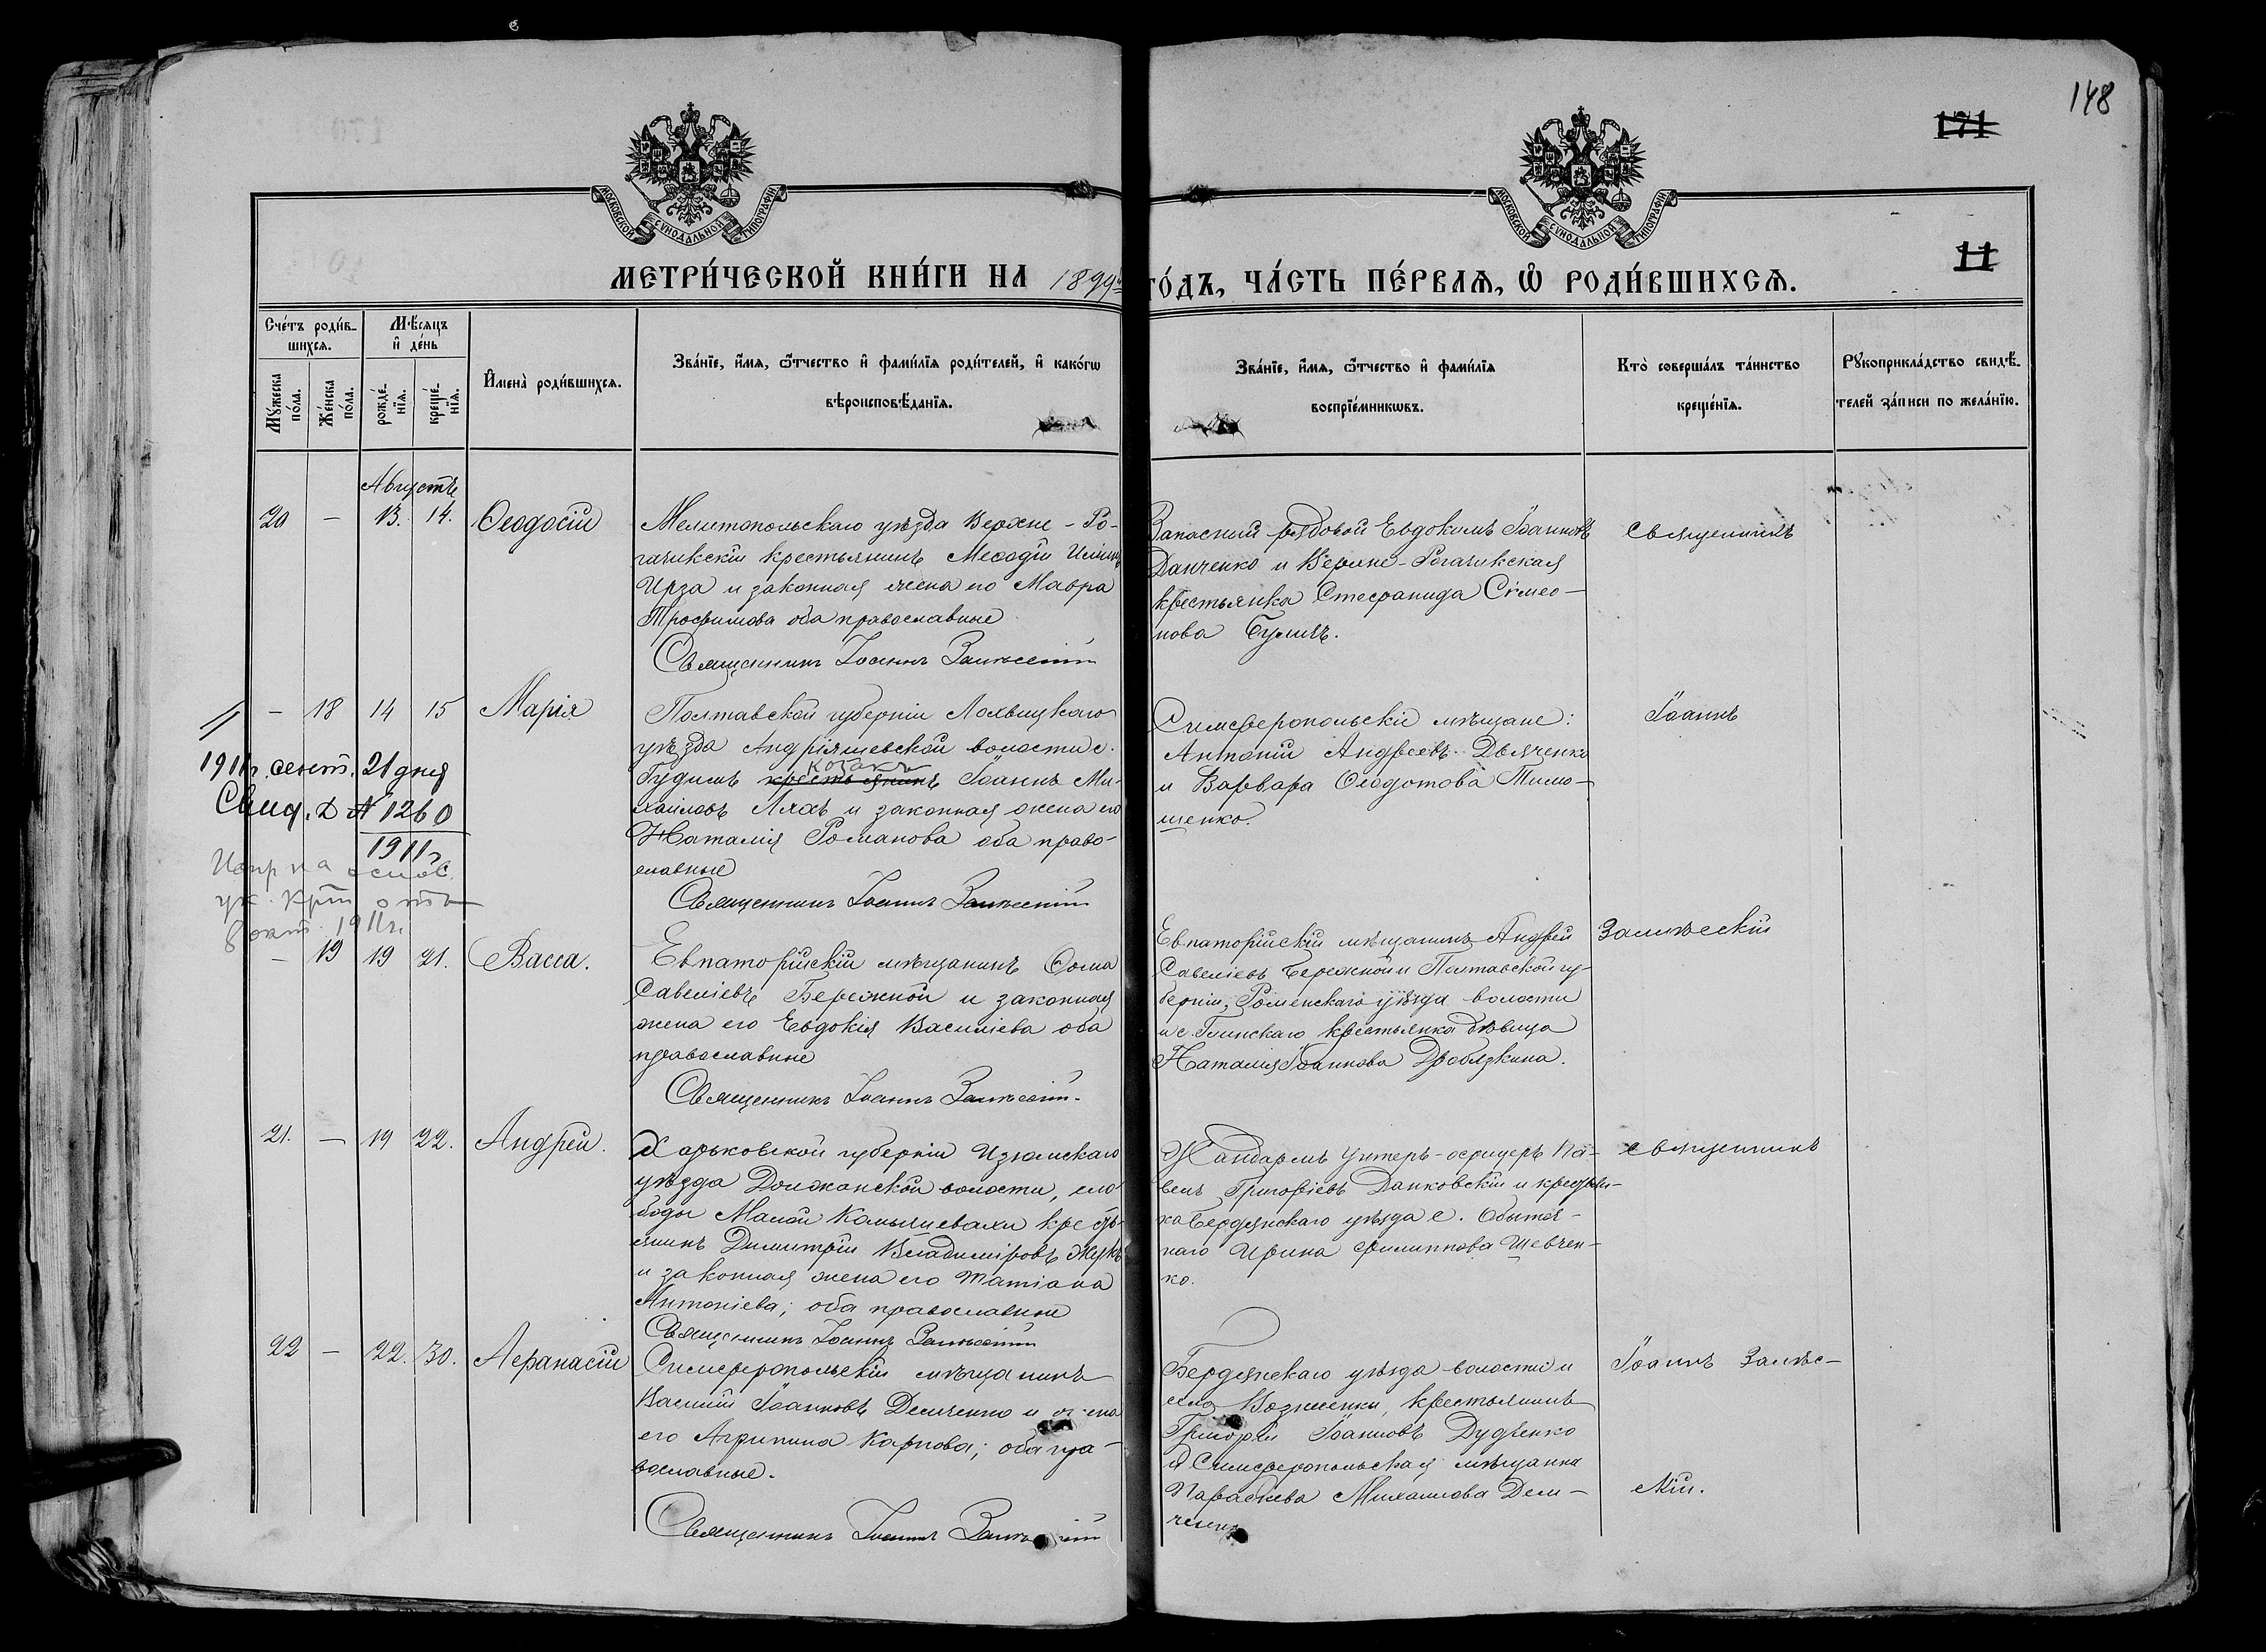 148
171
11
МОСКОВСКОЙ СѴНОДАЛЬНОЙ ТИПОГРАФІИ
МОСКОВСКОЙ СѴНОДАЛЬНОЙ ТИПОГРАФІИ
МЕТРИ́ЧЕСКОЙ КНИ́ГИ НА 1899й
ГО́ДЪ, ЧА́СТЬ ПЕ́РВАѦ, Ѽ РОДИ́ВШИХСѦ.
Сче́тъ роди́в-
шихсѧ.
Мꙋ́жеска
по́ла.
Же́нска
по́ла.
Мѣ́сѧцъ
и҆ де́нь
рожде́-
нїѧ.
креще́-
нїѧ.
И҆мена̀ роди́вшихсѧ.
Зва́нїе, и҆́мѧ, ѻ҆́тчество и҆ фами́лїѧ роди́телей, и҆ како́гѡ
вѣроисповѣ́данїѧ.
Зва́нїе, и҆́мѧ, ѻ҆́тчество и҆ фами́лїѧ
воспрїе́мникѡвъ.
Кто̀ соверша́лъ та́инство
креще́нїѧ.
Рꙋкоприкла́дство свидѣ́-
телей за́писи по жела́нїю.
Августъ
20 — 13. 14. Ѳеодосій
Мелитопольскаго уѣзда Верхне-Ро-
гачикскій крестьянинъ Меѳодій Иліинъ
Ирза и законная жена его Мавра
Трофимова оба православные
Священникъ Іоаннъ Залѣсскій
Запасный рядовой Евдокимъ Іоанновъ
Данченко и Верхне-Рогачикская
крестьянка Стефанида Сѵмео-
нова Гумиъ.
Священникъ
— 18 14 15 Марія
Полтавской губерніи Лохвицкаго
уѣзда Андріяшевской волости с.
козакъ
Гудимъ крестьянинъ Іоаннъ Ми-
хаиловъ Ляхъ и законная жена его
Наталія Романова оба право-
славные
Священникъ Іоаннъ Залѣсскій
Симферопольскіе мѣщане:
Антоній Андреевъ Дьяченко
и Варвара Ѳеодотова Тимо-
шенко.
Іоаннъ
1911г. сент. 21 дня
Свид. д № 1260
1911г
Испр на основ.
ук. Крст о отъ
8 окт. 1911г.
— 19 19 21. Васса.
Евпаторійскій мѣщанинъ Ѳома
Савеліевъ Бережной и законная
жена его Евдокія Василіева оба
православные
Священникъ Іоаннъ Залѣсскій.
Евпаторійскій мѣщанинъ Андрей
Савеліевъ Бережной и Полтавской гу-
берніи, Роменскаго уѣзда волости
и с. Глинскаго крестьянка дѣвица
Наталія Іоаннова Дроблякина.
Залѣсскій
21. — 19 22. Андрей.
Харьковской губерніи Изюмскаго
уѣзда Должанской волости, сло
боды Малой Камышевахи кресть-
янинъ Димитрій Владиміровъ Жукъ
и законная жена его Татіана
Антоніева; оба православные
Священникъ Іоаннъ Залѣсскій
Жандармъ Унтеръ-офицеръ Па-
велъ Григоріевъ Данковскій и крестьян-
ка Бердянскаго уѣзда с. Обыточ-
наго Ирина Филиппова Шевчен-
ко.
Священникъ
22 — 22. 30. Аѳанасій
Симферопольскій мѣщанинъ
Василій Іоанновъ Демченко и жена
его Агрипина Карпова; оба пра-
вославные.
Священникъ Іоаннъ Залѣсскій
Бердянскаго уѣзда волости и
села Вознесенки, крестьянинъ
Григорій Іоанновъ Дудченко
и Симферопольская мѣщанка
Параскева Михаилова Дем-
ченко
Іоаннъ Залѣс-
скій.